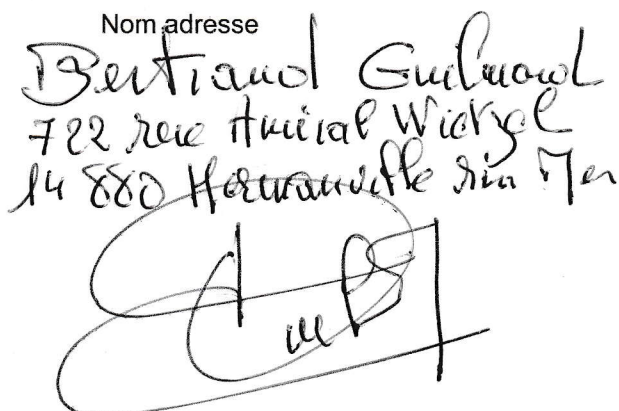 Nom adresse
Bertrand Guilmard
722 rue Amiral Wietzel
14 880 Hermanville sur Mer